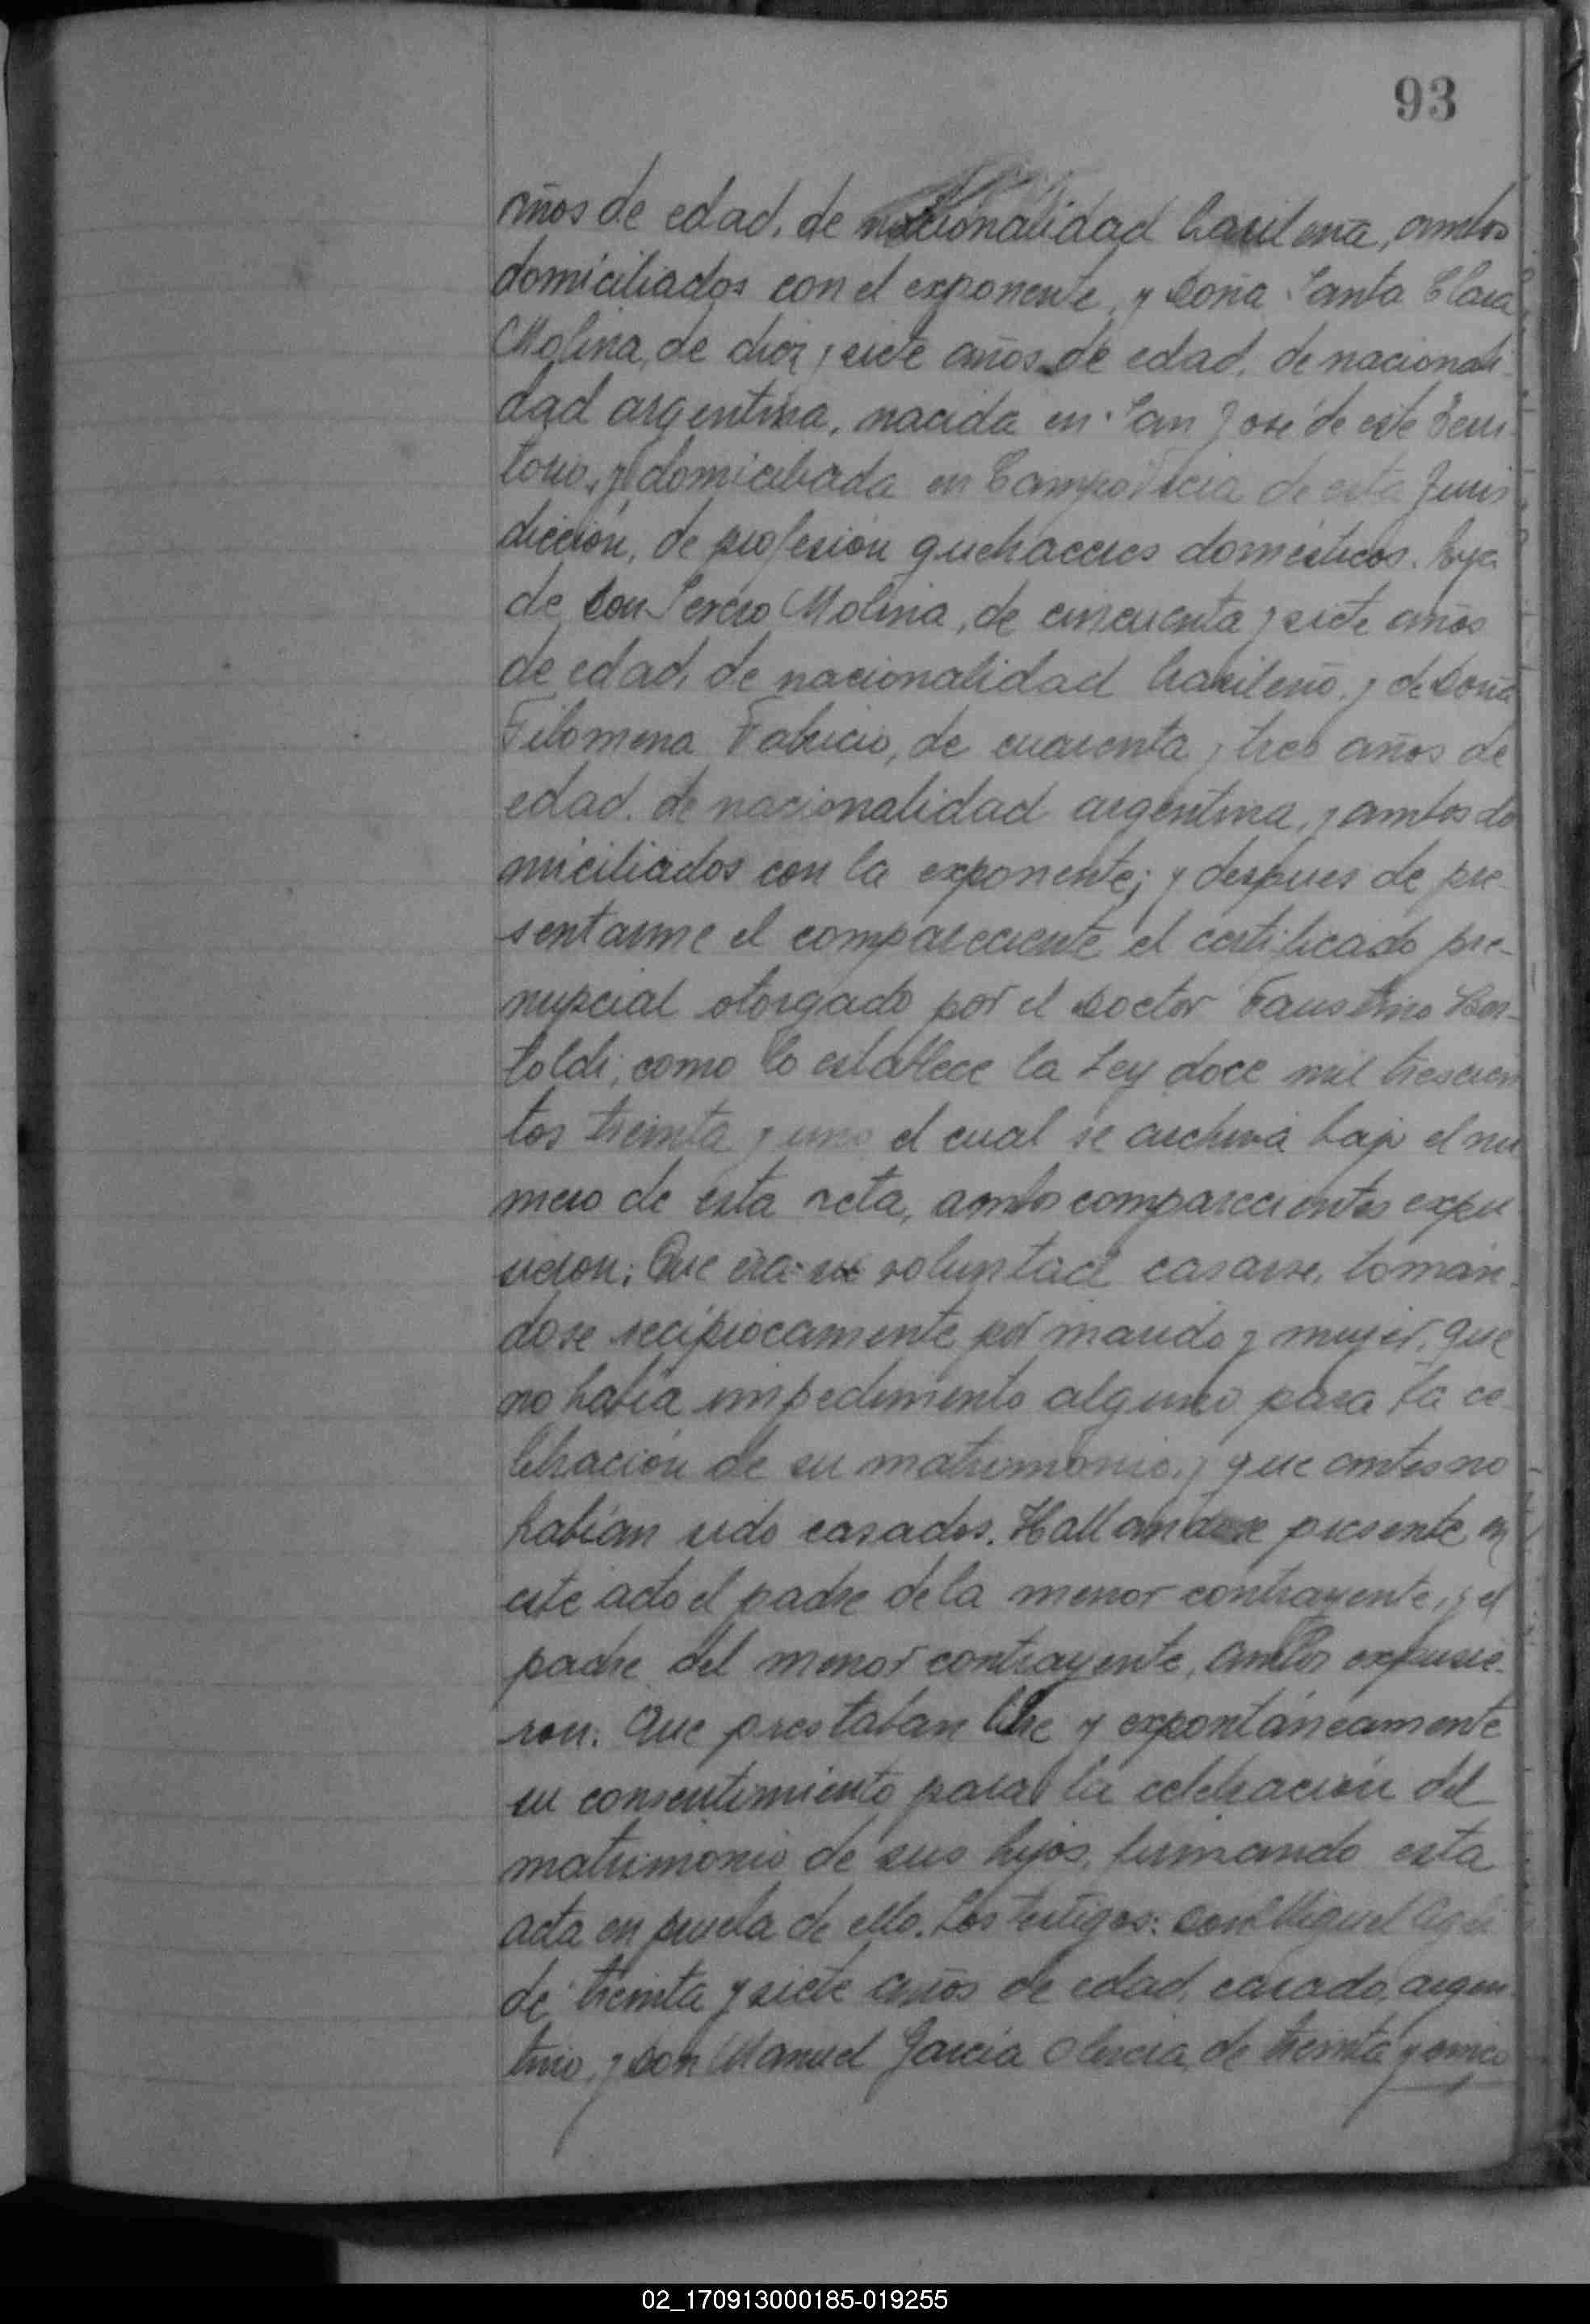 93
años de edad, de nacionalidad brasileña, ambos
domiciliados con el exponente, y doña Santa Clara
Molina, de diez y siete años de edad, de nacionali-
dad argentina, nacida en San José de este Terri-
torio, y domiciliada en Campo de esta Juris
dicción, de profesión quehaceres domésticos, hija
de don Molina, de cincuenta y siete años
de edad, de nacionalidad brasileño, y de doña
Filomena Fabricio, de cuarenta y tres años de
edad, de nacionalidad argentina, y ambos do
miciliados con la exponente; y despues de pre-
sentarme el compareciente el certificado pre-
nupcial otorgado por el doctor Faustino Ber-
toldi, como lo establece la Ley doce mil trescien
tos treinta y uno el cual se archiva bajo el nu
mero de esta acta, ambos comparecientes expu
sieron: Que era su voluntad casarse, tomán-
dose recíprocamente por marido y mujer, que
no había impedimento alguno para la ce-
lebración de su matrimonio, y que antes no
habían sido casados. Hallandose presente en
este acto el padre de la menor contrayente, y el
padre del menor contrayente, ambos expusie-
ron: Que prestaban libre y expontáneamente
su consentimiento para la celebración del
matrimonio de sus hijos, firmando esta
acta en prueba de ello. Los testigos: don Miguel
de treinta y siete años de edad, casado, argen
tino, y don Manuel García de treinta y cinco
02_170913000185-019255